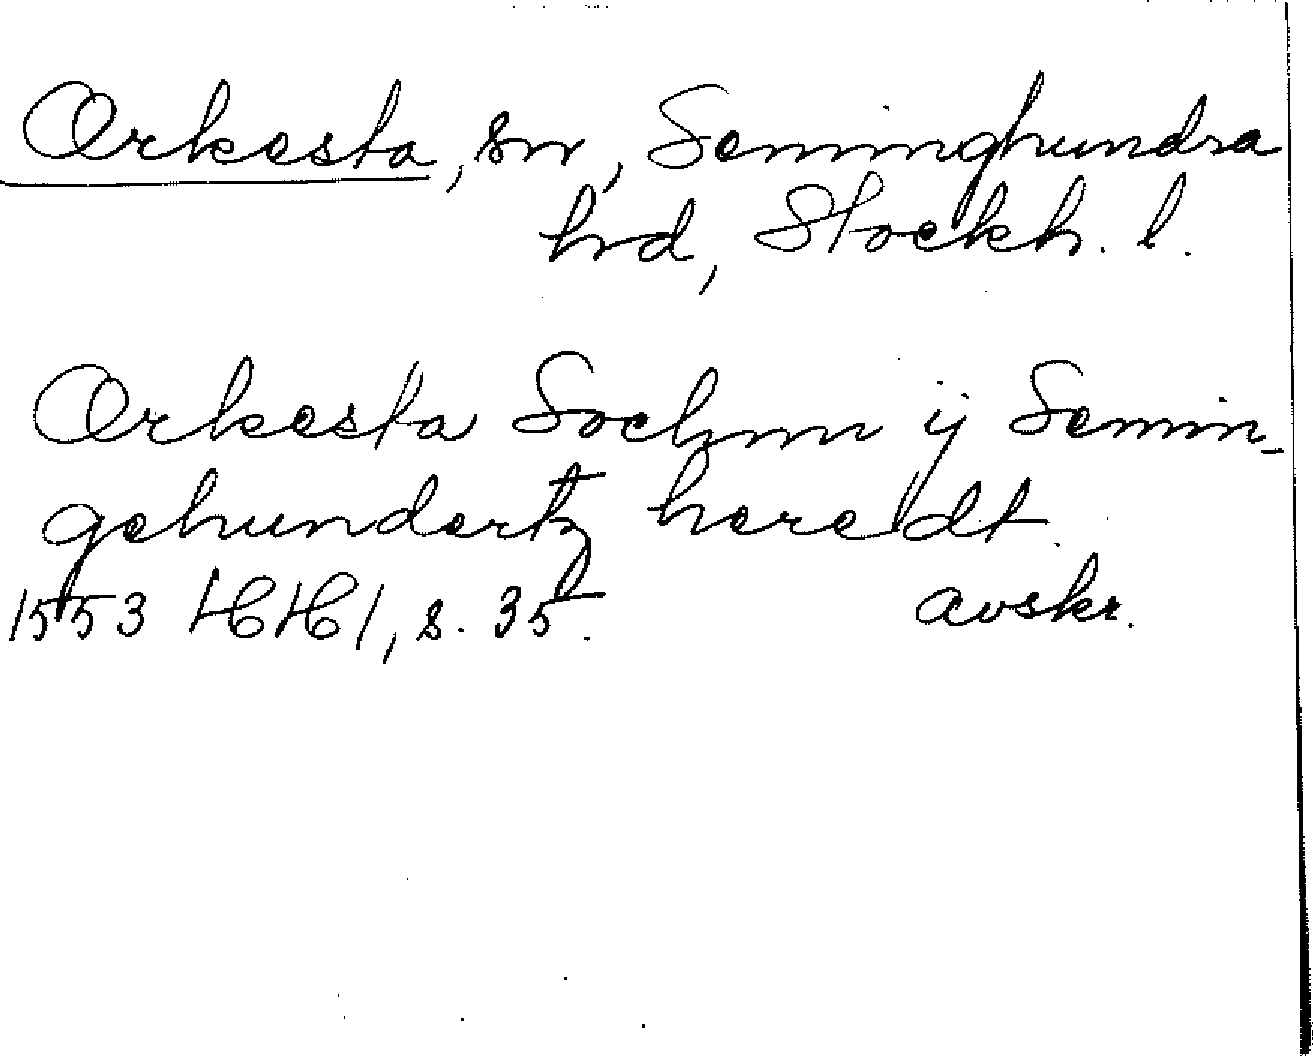 Orkesta, sn, Seminghundra
hrd, Stockh. l.
Orkesta Sochnn ij Semin-
gehundertz heredt
1553 HH 1, s. 35.
avskr.